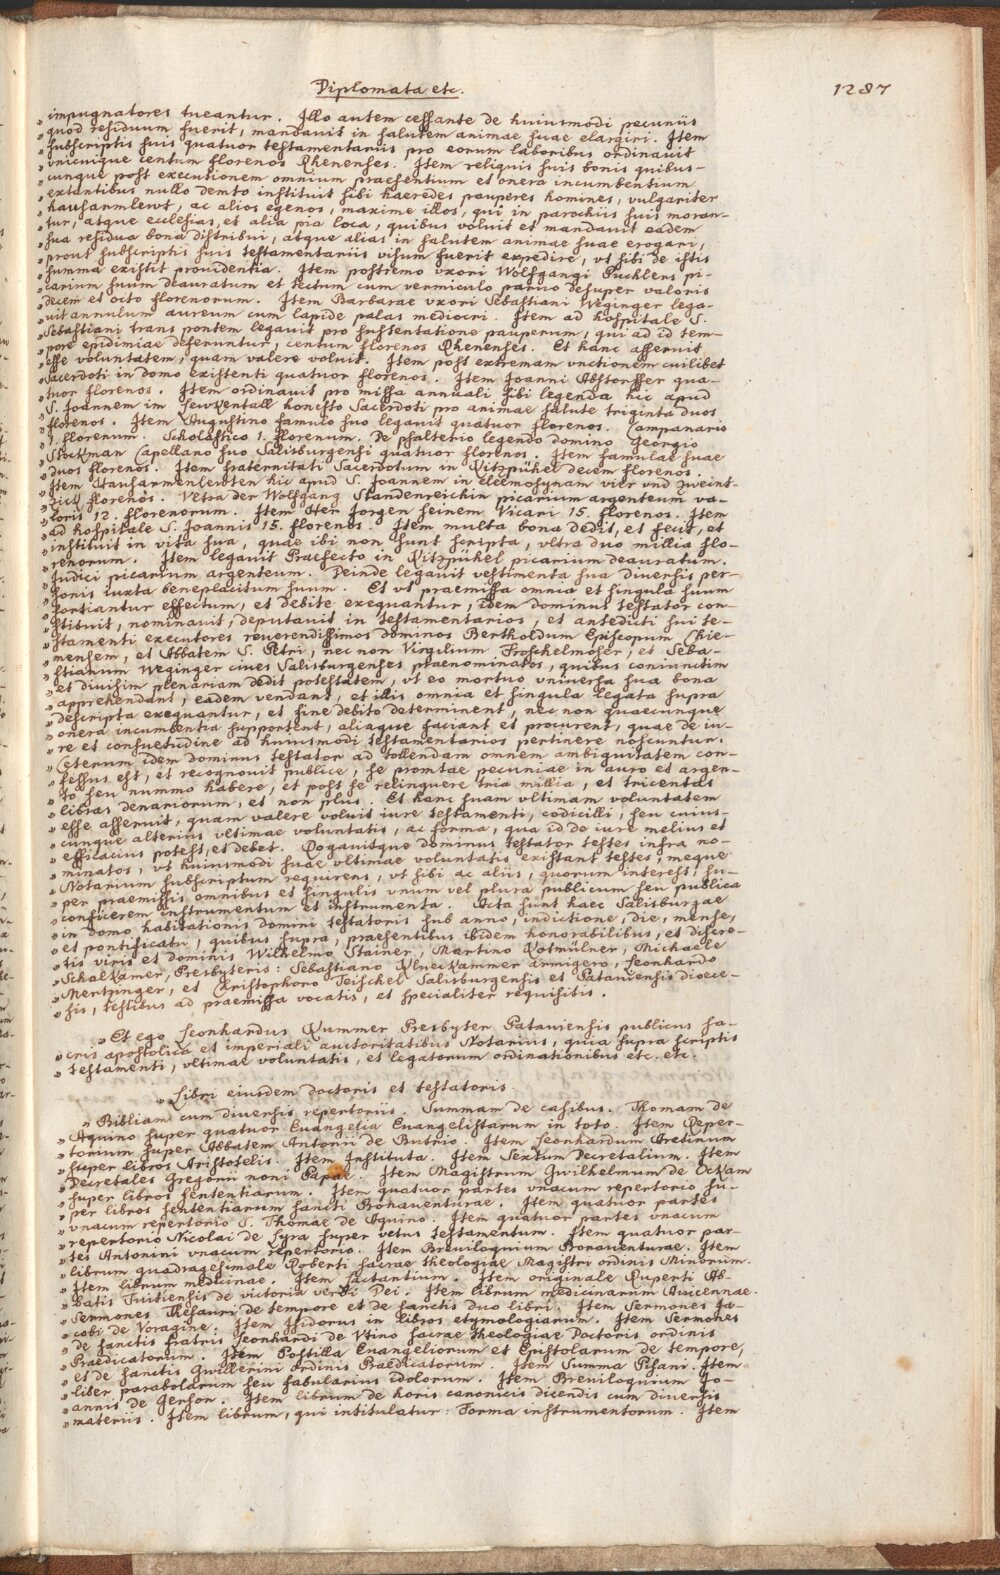 Diplomata etc.
1287
„ impugnatores tueantur. Illo autem cessante de huiusmodi pecuniis
„ quod residuum fuerit, mandauit in salutem animae suae elargiri. Item
„ subscriptis suis quatuor testamentariis pro eorum laboribus ordinauit
„ vnicuique centum florenos Rhenenses. Item reliquis suis bonis quibus-
„ cunque post executionem omnium praesentium et onera incumbentium
„ extantibus nullo demto instituit sibi haeredes pauperes homines, vulgariter
„ hausarmlewt, ac alios egenos, maxime illos, qui in parochiis suis moran-
„ tur, atque ecclesias, et alia pia loca, quibus voluit et mandauit eadem
„ sua residua bona distribui, atque alias in salutem animae suae erogari,
„ prout subscriptis suis testamentariis visum fuerit expedire, vt sibi de istis
„ summa existit prouidentia. Item postremo vxori Wolfgangi Puchlers pi-
„ carium suum deauratum et tectum cum vermiculo paruo desuper valoris
„ decem et octo florenorum. Item Barbarae vxori Sebastiani Weginger lega-
„ uit annulum aureum cum lapide palas mediocri. Item ad hospitale S.
„ Sebastiani trans pontem legauit pro sustentatione pauperum, qui ad id tem-
„ pore epidimiae deferuntur, centum florenos Rhenenses. Et hanc asseruit
„ esse voluntatem, quam valere voluit. Item post extremam vnctionem cuilibet
„ sacerdoti in domo existenti quatuor florenos. Item Joanni Abstorffer qua-
„ tuor florenos. Item ordinauit pro missa annuali sibi legenda hic apud
„ S. Joannem im Lewkentall honesto Sacerdoti pro animae salute triginta duos
„ florenos. Item Augustino famulo suo legauit quatuor florenos. Campanario
„ 1. florenum. Scholastico 1. florenum. De psalterio legendo domino Georgio
„ Stockman Capellano suo Salisburgensi quatuor florenos. Item famulae suae
„ duos florenos. Item fraternitati Sacerdotum in Kitzpühel decem florenos.
„ Item Hausarmenlewten hic apud S. Joannem in eleemosynam vier vnd zweint-
„ zick florenos. Vltra der Wolfgang Standenreichin picarium argenteum va-
„ loris 12. florenorum. Item Her Jorgen seinem Vicari 15. florenos. Item
„ ad hospitale S. Joannis 15. florenos. Item multa bona dedit, et fecit, et
„ instituit in vita sua, quae ibi non sunt scripta, vltra duo millia flo-
„ renorum. Item legauit Praefecto in Kitzpühel picarium deauratum.
„ Iudici picarium argenteum. Deinde legauit vestimenta sua diuersis per-
„ sonis iuxta beneplacitum suum. Et vt praemissa omnia et singula suum
„ sortiantur effectum, et debite exequantur, idem dominus testator con-
„ stituit, nominauit, deputauit in testamentarios, et antedicti sui te-
„ stamenti executores reuerendissimos dominos Bertholdum Episcopum Chie-
„ mensem, et Abbatem S. Petri, nec non Virgilium Froschelmoser, et Seba-
„ stianum Weginger ciues Salisburgenses praenominatos, quibus coniunctim
„ et diuisim plenariam dedit potestatem, vt eo mortuo vniuersa sua bona
„ apprehendant, eadem vendant, et illis omnia et singula legata supra
„ descripta exequantur, et sine debito determinent, nec non quaecunque
„ onera incumbentia supportent, aliaque faciant et procurent, quae de iu-
„ re et consuetudine ad huiusmodi testamentarios pertinere noscuntur.
„ Ceterum idem dominus testator ad tollendam omnem ambiguitatem con-
„ fessus est, et recognouit publice, se promtae pecuniae in auro et argen-
„ to seu nummo habere, et post se relinquere tria millia, et tricentas
„ libras denariorum, et non plus. Et hanc suam vltimam voluntatem
„ esse asseruit, quam valere voluit iure testamenti, codicilli, seu cuius-
„ cunque alterius vltimae voluntatis, ac forma, qua id de iure melius et
„ efficacius potest, et debet. Rogauitque dominus testator testes infra no-
„ minatos, vt huiusmodi suae vltimae voluntatis existant testes, meque
„ Notarium subscriptum requirens, vt sibi ac aliis, quorum interest, su-
„ per praemissis omnibus et singulis vnum vel plura publicum seu publica
„ conficerem instrumentum et instrumenta. Acta sunt haec Salisburgae
„ in domo habitationis domini testatoris sub anno, indictione, die, mense,
„ et pontificatu, quibus supra, praesentibus ibidem honorabilibus, et discre-
„ tis viris et dominis Wilhelmo Stainer, Martino Rotmülner, Michaele
„ Schalkamer, Presbyteris: Sebastiano Klueckammer armigero, Leonhardo
„ Mertzinger, et Christophoro Teischel Salisburgensis et Patauiensis dioece-
„ sis, testibus ad praemissa vocatis, et specialiter requisitis.
„ Et ego Leonhardus Kummer Presbyter Patauiensis publicus sa-
„ cris apostolica et imperiali auctoritatibus Notarius, quia supra scriptis
„ testamenti, vltimae voluntatis, et legatorum ordinationibus etc. etc.
„ Libri eiusdem doctoris et testatoris.
„ Bibliam cum diuersis repertoriis. Summam de casibus. Thomam de
„ Aquino super quatuor Euangelia Euangelistarum in toto. Item Reper-
„ torium super Abbatem Antonii de Butrio. Item Leonhardum Aretinum
„ super libros Aristotelis. Item Instituta. Item Sextum Decretalium. Item
„ Decretales Gregorii noni Papae. Item Magistrum Gwilhelmum de Ockam
„ super libros sententiarum. Item quatuor partes vnacum repertorio su-
„ per libros sententiarum sancti Bonauenturae. Item quatuor partes
„ vnacum repertorio S. Thomae de Aquino. Item quatuor partes vnacum
„ repertorio Nicolai de Lyra super vetus testamentum. Item quatuor par-
„ tes Antonini vnacum repertorio. Item Breuiloquium Bonauenturae. Item
„ librum quadragesimale Roberti sacrae theologiae Magistri ordinis Minorum.
„ Item librum medicinae. Item Lactantium. Item originale Ruperti Ab-
„ batis Tuitiensis de victoria verbi Dei. Item librum medicinarum Auicennae.
„ Sermones Thesauri de tempore et de sanctis duo libri. Item Sermones Ja-
„ cobi de Voragine. Item Isidorus in libros etymologiarum. Item Sermones
„ de sanctis fratris Leonhardi de Vtino sacrae theologiae Doctoris ordinis
„ Praedicatorum. Item Postilla Euangeliorum et Epistolarum de tempore,
„ et de sanctis Gwillerini ordinis Praedicatorum. Item Summa Pisani. Item
„ liber parabolarum seu fabularius idolorum. Item Breuiloquium Jo-
„ annis de Gerson. Item librum de horis canonicis dicendis cum diuersis
„ materiis. Item librum, qui intitulatur: Forma instrumentorum. Item